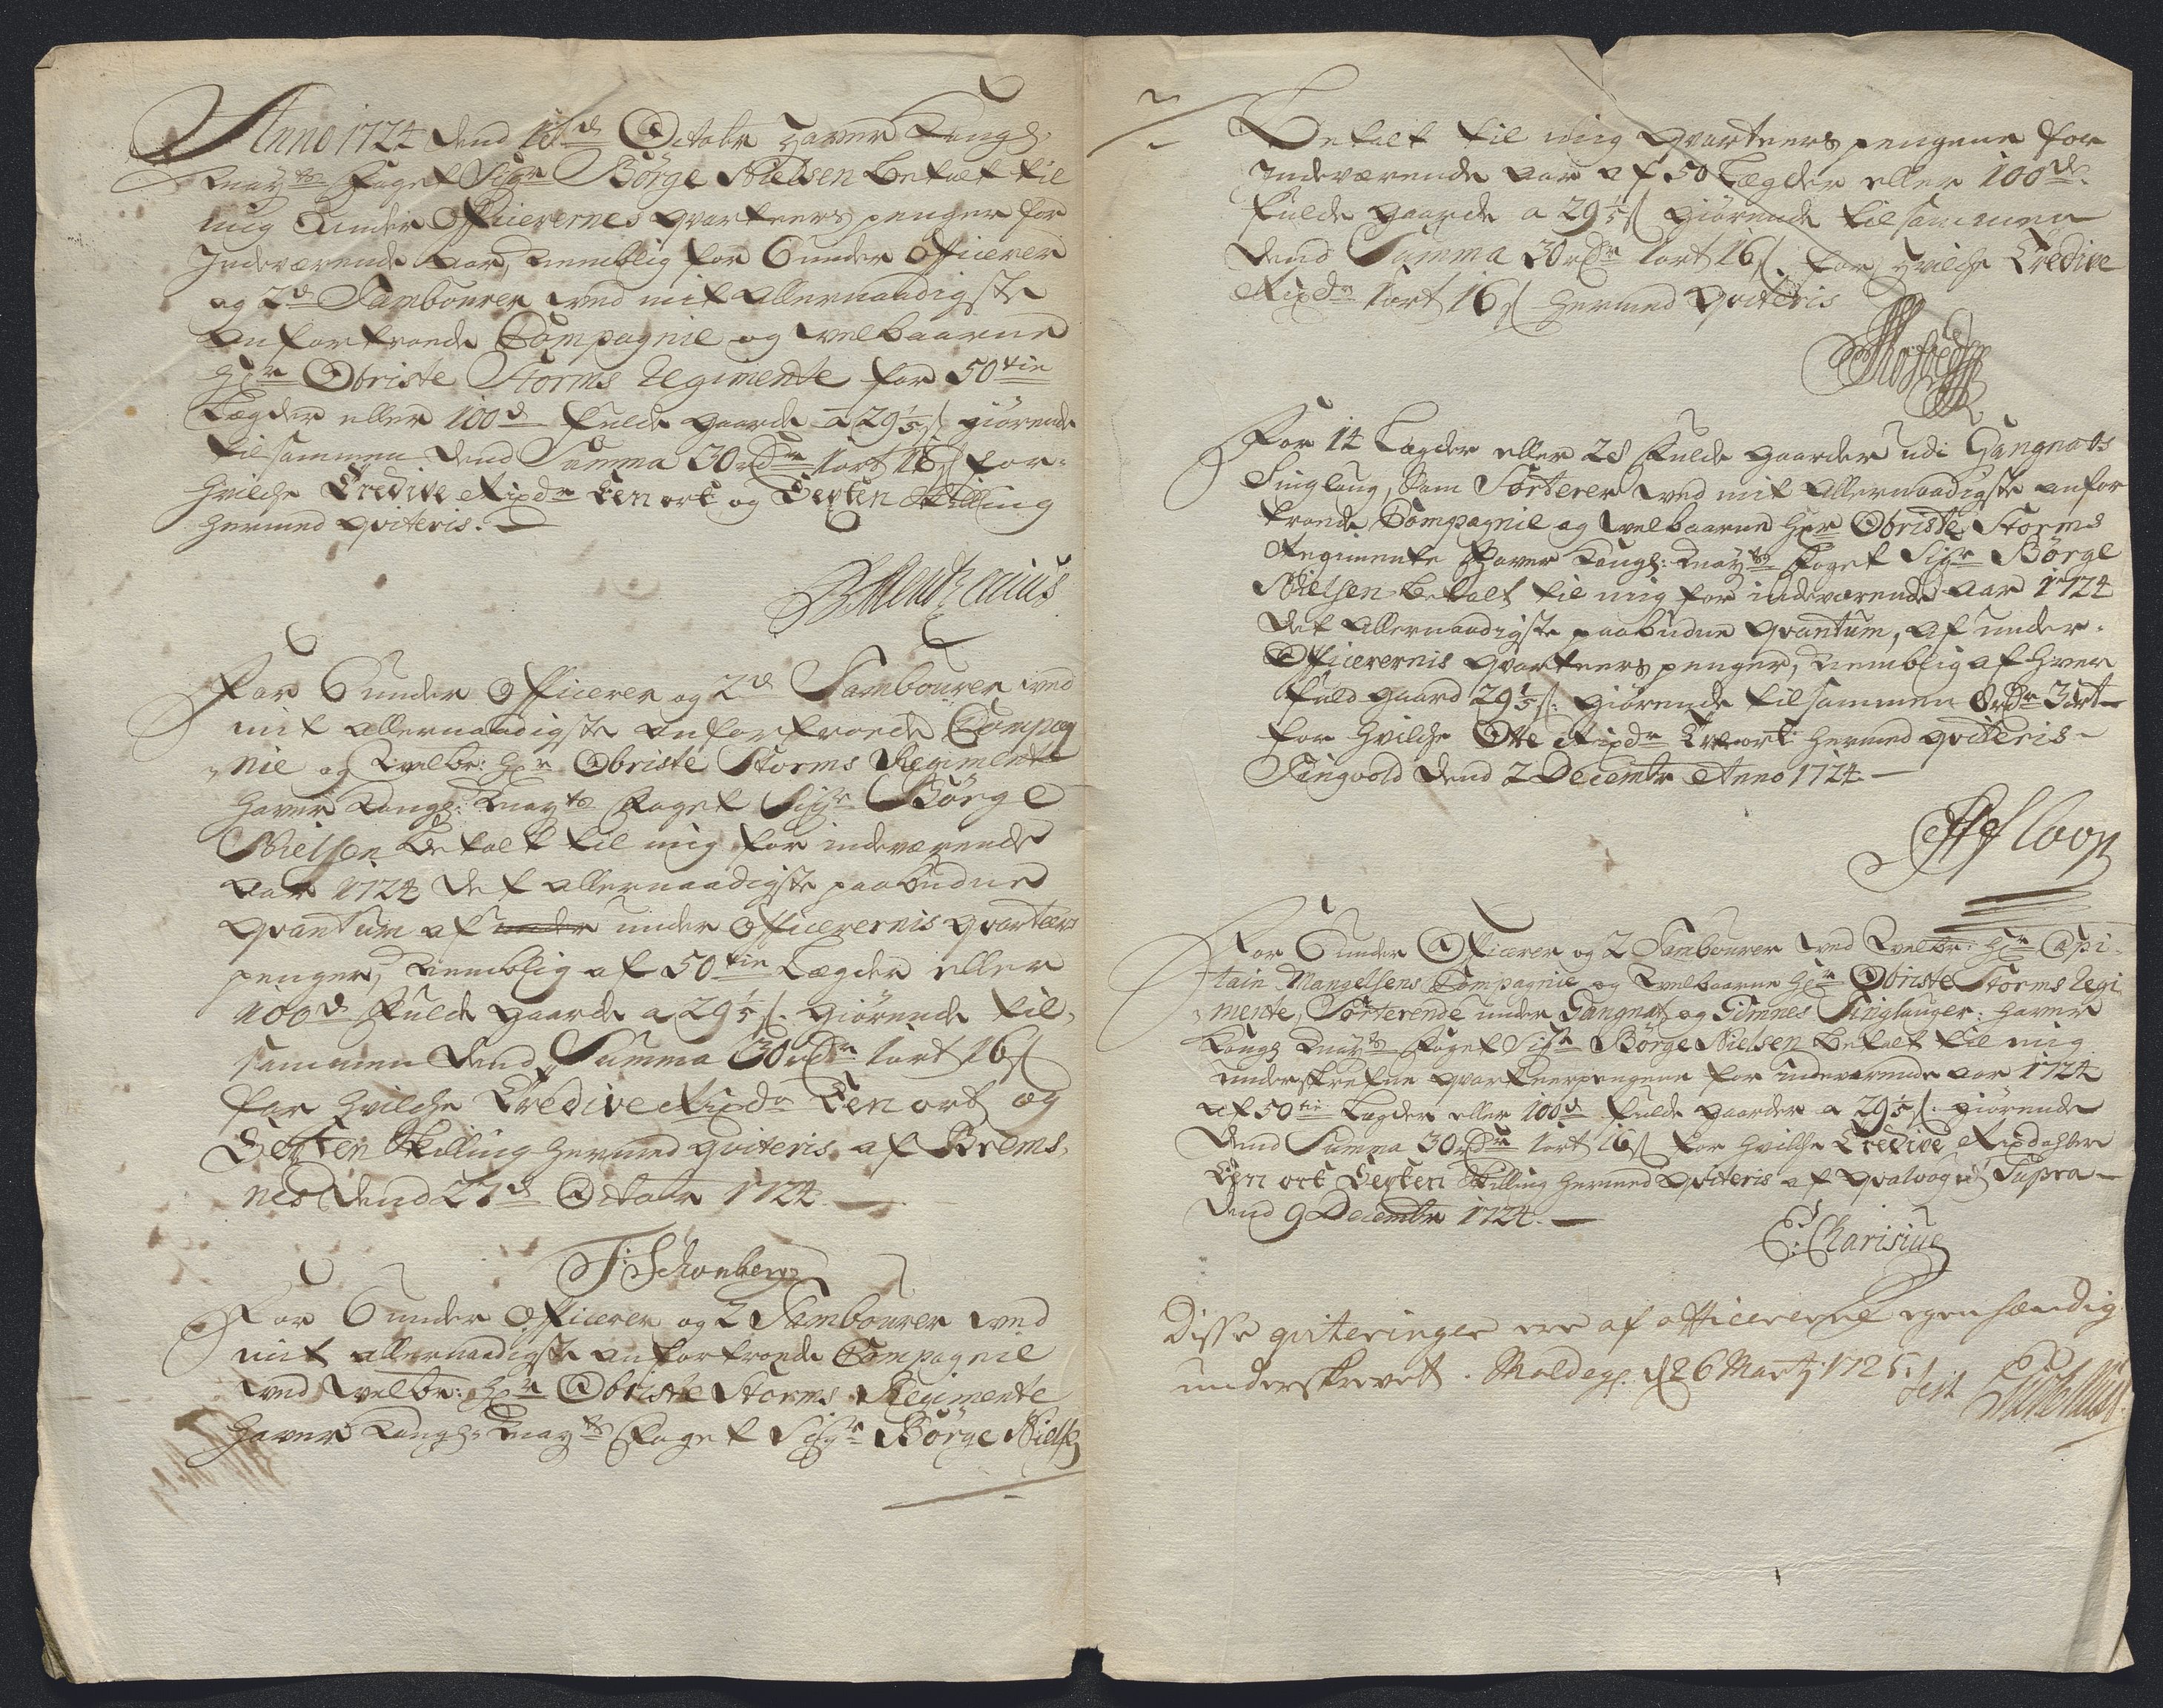 Anno 1724 dend 16d Octobr haver Kongl:
Mayts foget Sigr Börge Nielsen betalt til
mig under Officerernes qvarteers penger for
Indeværende aar, nemblig for 6 under Officerer
og 2d Tambourer ved mit allernaadigste
anfortroede Compagnie og velbaarne
Hr Obriste Storms Regimente for 50tie
Lægder eller 100d fulde gaarde a 29 1/5 s giörende
tilsammen dend Summa 30 rdr 1 ort 16 s for-
hvilche Tredive Rixdr Een ort og Sexten Skilling
hermed qviteris.
For 6 under Officerer og 2d Tambourer ved
mit allernaadigste anfortroede Compag
nie og velbr: Hr Obriste Storms Regimente
haver Kongl: Mayts foget Sigr Börge
Nielsen betalt til mig for indeværende
aar 1724 det allernaadigste paabudne
qvantum af under under Officerernis qvarteers
penger, nemblig af 50tie Lægder eller
100d fulde gaarde a 29 1/5 s. giörende til-
sammen dend Summa 30 rdr 1 ort 16 s
for hvilche Tredive Rixdr Een ort og
Sexten Skilling hermed qviteris af Brems-
nes dend 27d Octobr 1724
T: Schonberg
For 6 under Officerer og 2 Tambourer ved
mit allernaadigste anfortroede Compagnie
ved velbr: Hr Obriste Storms Regimente
haver Kongl: Mayts foget Sigr Börge Nielsen
Betalt til mig qvarteers pengene for
Indeværende aar af 50 Lægder eller 100de
fulde gaarde a 29 1/5 s giörende tilsammen
dend Summa 30 rdr 1 ort 16 s. for hvilche Tredive
Rixdr 1 ort 16 s hermed qviteris
For 14 Lægder eller 28 fulde gaarder udi Gangnats
Tinglaug, som Sorterer ved mit allernaadigste anfor
troede Compagnie og velbaarne Her Obriste Storms
Regimente haver Kongl: Mayts foget Sigr Börge
Nielsen betalt til mig for indeværende aar 1724
det allernaadigste paabudne qvantum, af under-
Officerernis qvarteers penger, nemblig af hver
fuld gaard 29 1/5 s: giörende tilsammen 8 rdr 3 ort
for hvilche Otte Rixdr Tre ort hermed qviteris
Tingvold dend 2 Decembr Anno 1724
For 6 under Officerer og 2 Tambourer ved velbr: Hr Capi-
tain Mangelsens Compagnie og velbaarne Hr Obriste Storms Regi
mente, Sorterende under Gangnat og Gimnes Tinglauger: haver
Kongl Mayts foget Sigr Börge Nielsen betalt til mig
underskrefne qvarteerpengene for indeværende aar 1724
af 50tie Lægder eller 100d fulde gaarder a 29 1/5 s. giörende
dend Summa 30 rdr 1 ort 16 s for hvilche Tredive Rixdahler
Een ort Sexten Skilling hermed qviteris af Supra
dend 9 Decembr 1724.
Disse qviteringer ere af officererne egenhændig
underskrevet. Molde d 26 Martj 1725.